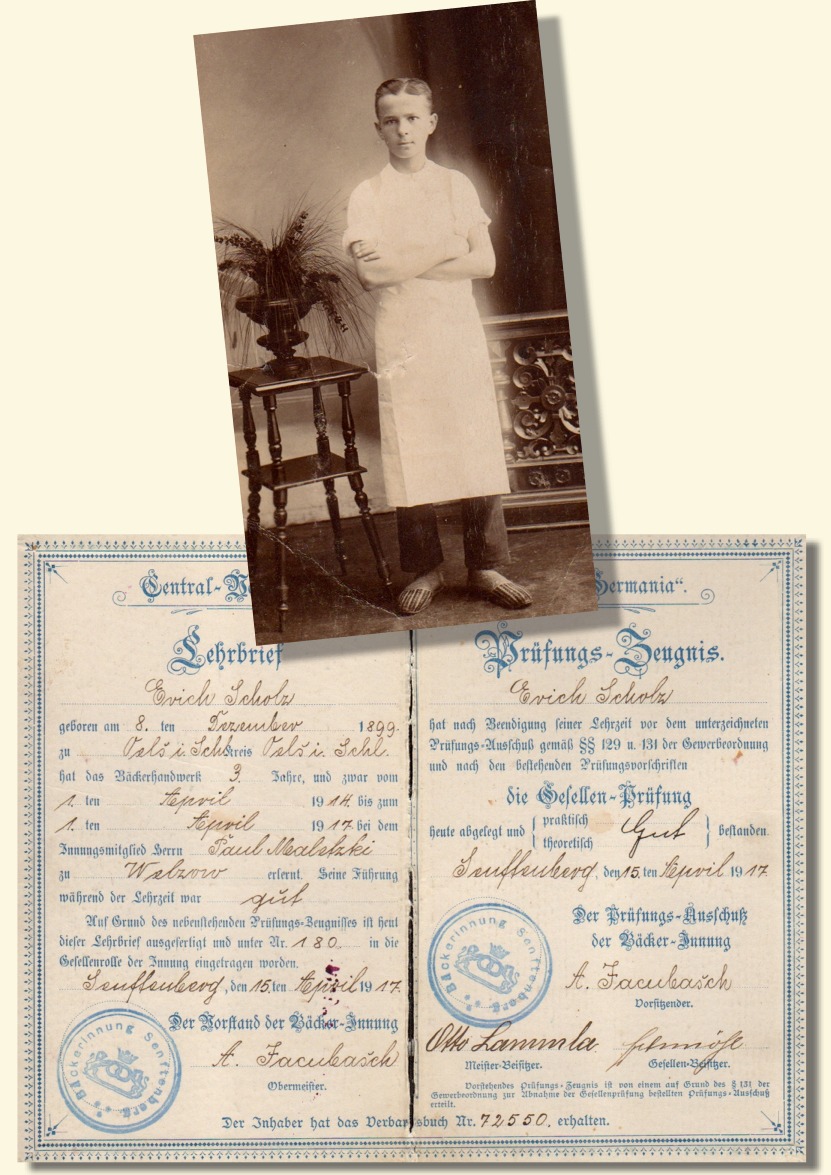 Central-
Lehrbrief
Erich Scholz
geboren am 8. ten Dezember 1899
zu Oels i. Schl. Kreis Oels i. Schl.
hat das Bäckerhandwerk 3. Jahre, und zwar vom
1. ten April 1914 bis zum
1. ten April 1917 bei dem
Innungsmitglied Herrn Paul Maletzki
zu Welzow erlernt. Seine Führung
während der Lehrzeit war gut
Auf Grund des nebenstehenden Prüfungs-Zeugnisses ist heut
dieser Lehrbrief ausgefertigt und unter Nr. 180. in die
Gesellenrolle der Innung eingetragen worden.
Senftenberg, den 15. ten April 1917.
Der Vorstand der Bäcker-Innung
A. Jacubasch
Obermeister.
Bäckerinnung Senftenberg
Germania“.
Prüfungs-Zeugnis.
Erich Scholz
hat nach Beendigung seiner Lehrzeit vor dem unterzeichneten
Prüfungs-Ausschuß gemäß §§ 129 u. 131 der Gewerbeordnung
und nach den bestehenden Prüfungsvorschriften
die Gesellen-Prüfung
heute abgelegt und praktisch theoretisch Gut bestanden
Senftenberg, den 15. ten April 1917
Der Prüfungs-Ausschuß
der Bäcker-Innung
A. Jacubasch
Vorsitzender.
Bäckerinnung Senftenberg
Otto Lammla
Meister-Beisitzer. Gesellen-Beisitzer.
Vorstehendes Prüfungs-Zeugnis ist von einem auf Grund des § 131 der
Gewerbeordnung zur Abnahme der Gesellenprüfung bestellten Prüfungs-Ausschuß
erteilt.
Der Inhaber hat das Verbandsbuch Nr. 72550. erhalten.